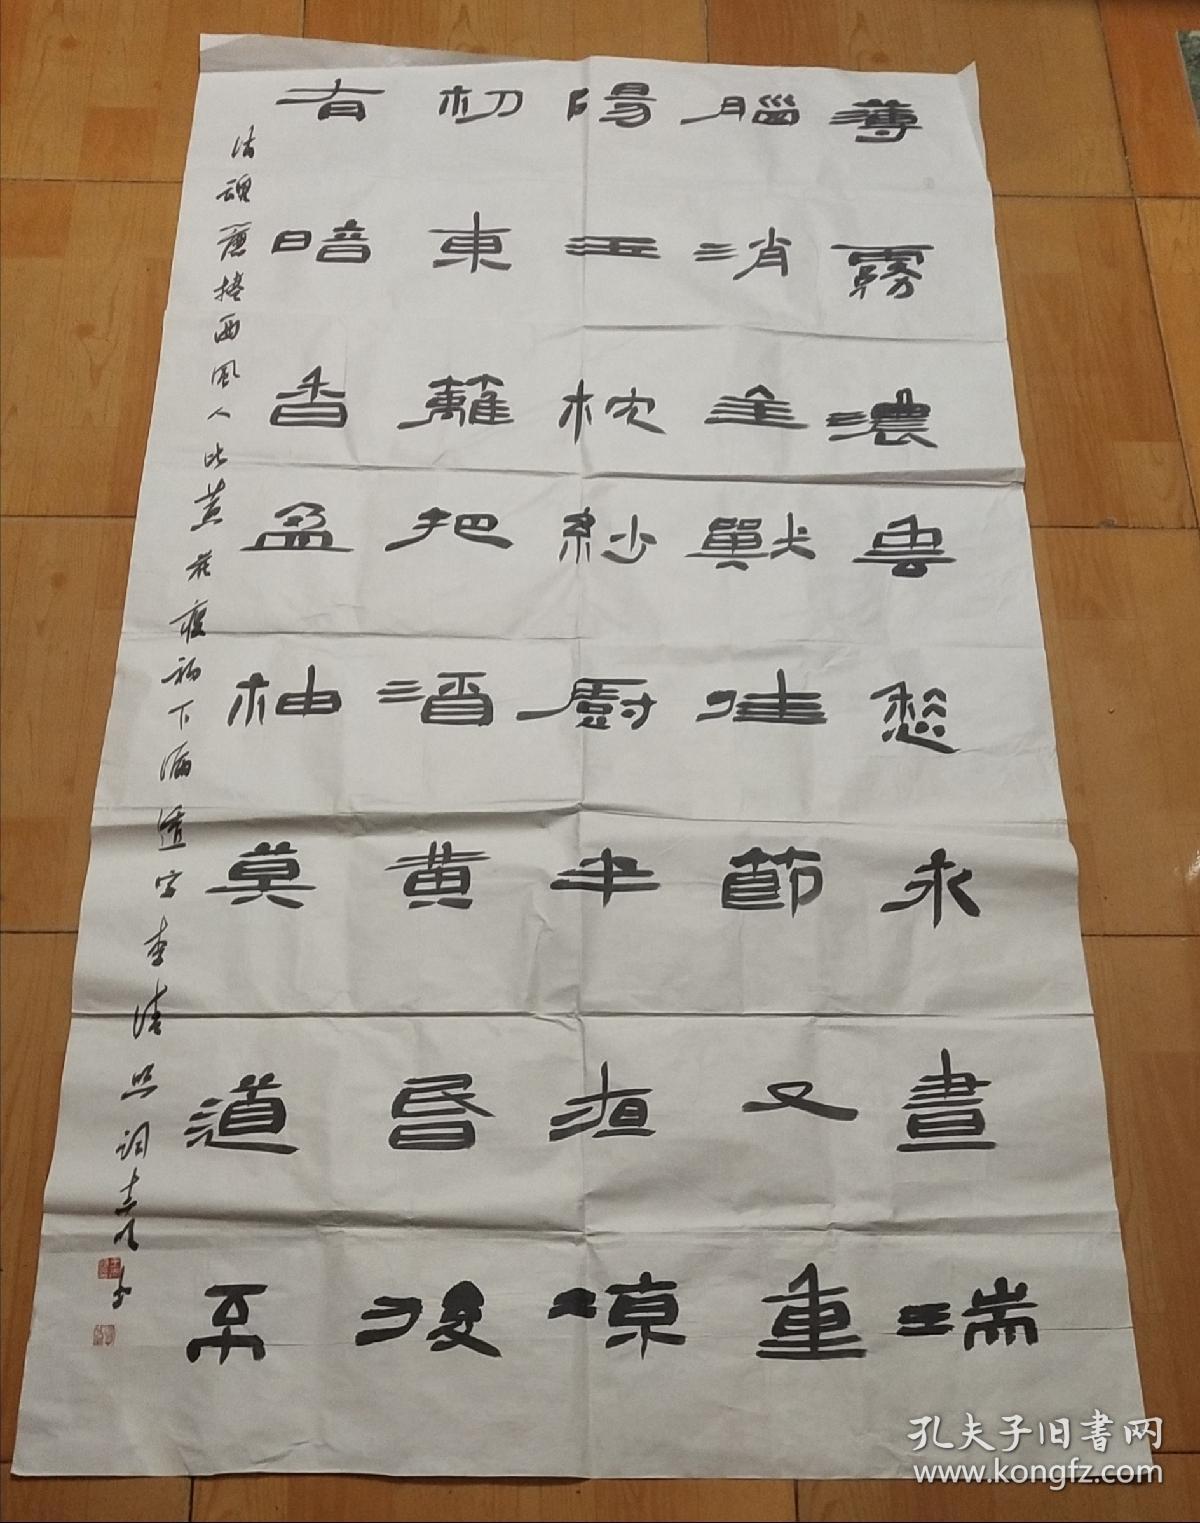 薄霧濃雲愁永晝瑞
腦消金獸佳節又重
陽玉枕紗廚半夜涼
初東籬把酒黃昏後
有暗香盈袖莫道不
消魂簾捲西風人比黃花瘦初下漏透字李清照詞
孔夫子旧書网
www.kongfz.com